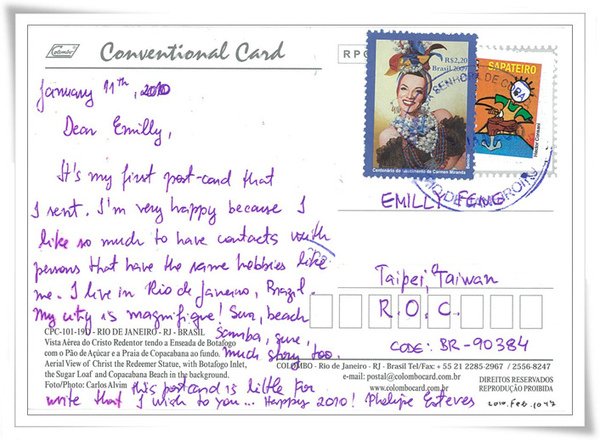 Colombo
Conventional Card
RPC
R$ 2,20
Brasil 2009
Centenário do Nascimento de Carmen Miranda
SAPATEIRO
January 11th, 2010
Dear Emilly,
It's my first post-card that
I sent. I'm very happy because I
like so much to have contacts with
persons that have the same hobbies like
me. I live in Rio de Janeiro, Brazil.
My city is magnifique! Sun, beach
Samba, sure,
much story, too.
this postcard is little for
write that I wish to you... Happy 2010! Phelipe Esteves
EMILLY FONG
Taipei, Taiwan
R.O.C.
CODE: BR-90384
CPC-101-19D - RIO DE JANEIRO - RJ - BRASIL
Vista Aérea do Cristo Redentor tendo a Enseada de Botafogo
com o Pão de Açúcar e a Praia de Copacabana ao fundo.
Aerial View of Christ the Redeemer Statue, with Botafogo Inlet,
the Sugar Loaf and Copacabana Beach in the background.
Foto/Photo: Carlos Alvim
COLOMBO - Rio de Janeiro - RJ - Brasil Tel/Fax: + 55 21 2285-2967 / 2556-8247
e-mail: postal@colombocard.com.br
www.colombocard.com.br
DIREITOS RESERVADOS
REPRODUÇÃO PROIBIDA
2010. Feb. 10